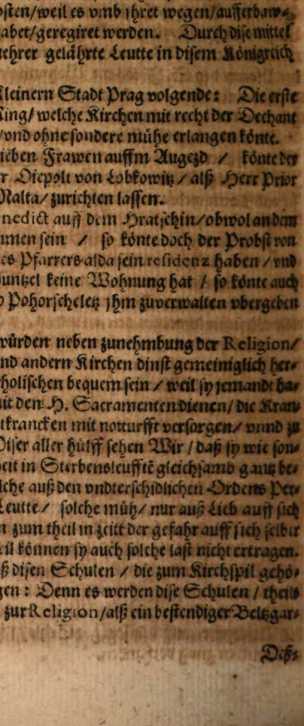 osten/weil es vmb jhret wegen/ausserhaw⸗
abet/geregiret werden. Durch dise mittel
ehrer gelährte Leutte in disem Königreich
kleinern Stadt Prag volgende: Die erste
Ring/welche Kirchen mit recht der Dechant
/vnd ohne sondere mühe erlangen könte.
lieben Frawen auffm Augezd / könte der
r Diepolt von Lobkowitz/alß Herr Prior
Malta/zurichten lassen.
nedict auff dem Hratschin/obwol an dem
men sein / so könte doch der Probst von
es Pfarrers alda sein residenz haben/vnd
buntzel keine Wohnung hat / so könte auch
o Pohorscheletz jhm zuverwalten vbergeben
würden neben zunehmbung der Religion/
nd andern Kirchen dinst gemeiniglich her⸗
holischen bequem sein / weil sy jemandt ha⸗
mit den H. Sacramenten dienen/die Kran⸗
tkrancken mit notturfft versorgen/vnnd zu
Diser aller hülff sehen Wir / daß sy wie son⸗
eit in Sterbensleufftē gleichsamb gantz be⸗
lche auß den vndterschidlichen Ordens Per⸗
Leutte / solche müh/nur auß Lieb auff sich
n zum theil in zeitt der gefahr auff sich selbst
il können sy auch solche last nicht ertragen.
ß disen Schulen / die zum Kirchspil gehö⸗
gen: Denn es werden dise Schulen / theils
zur Religion/alß ein bestendiger
Deß⸗